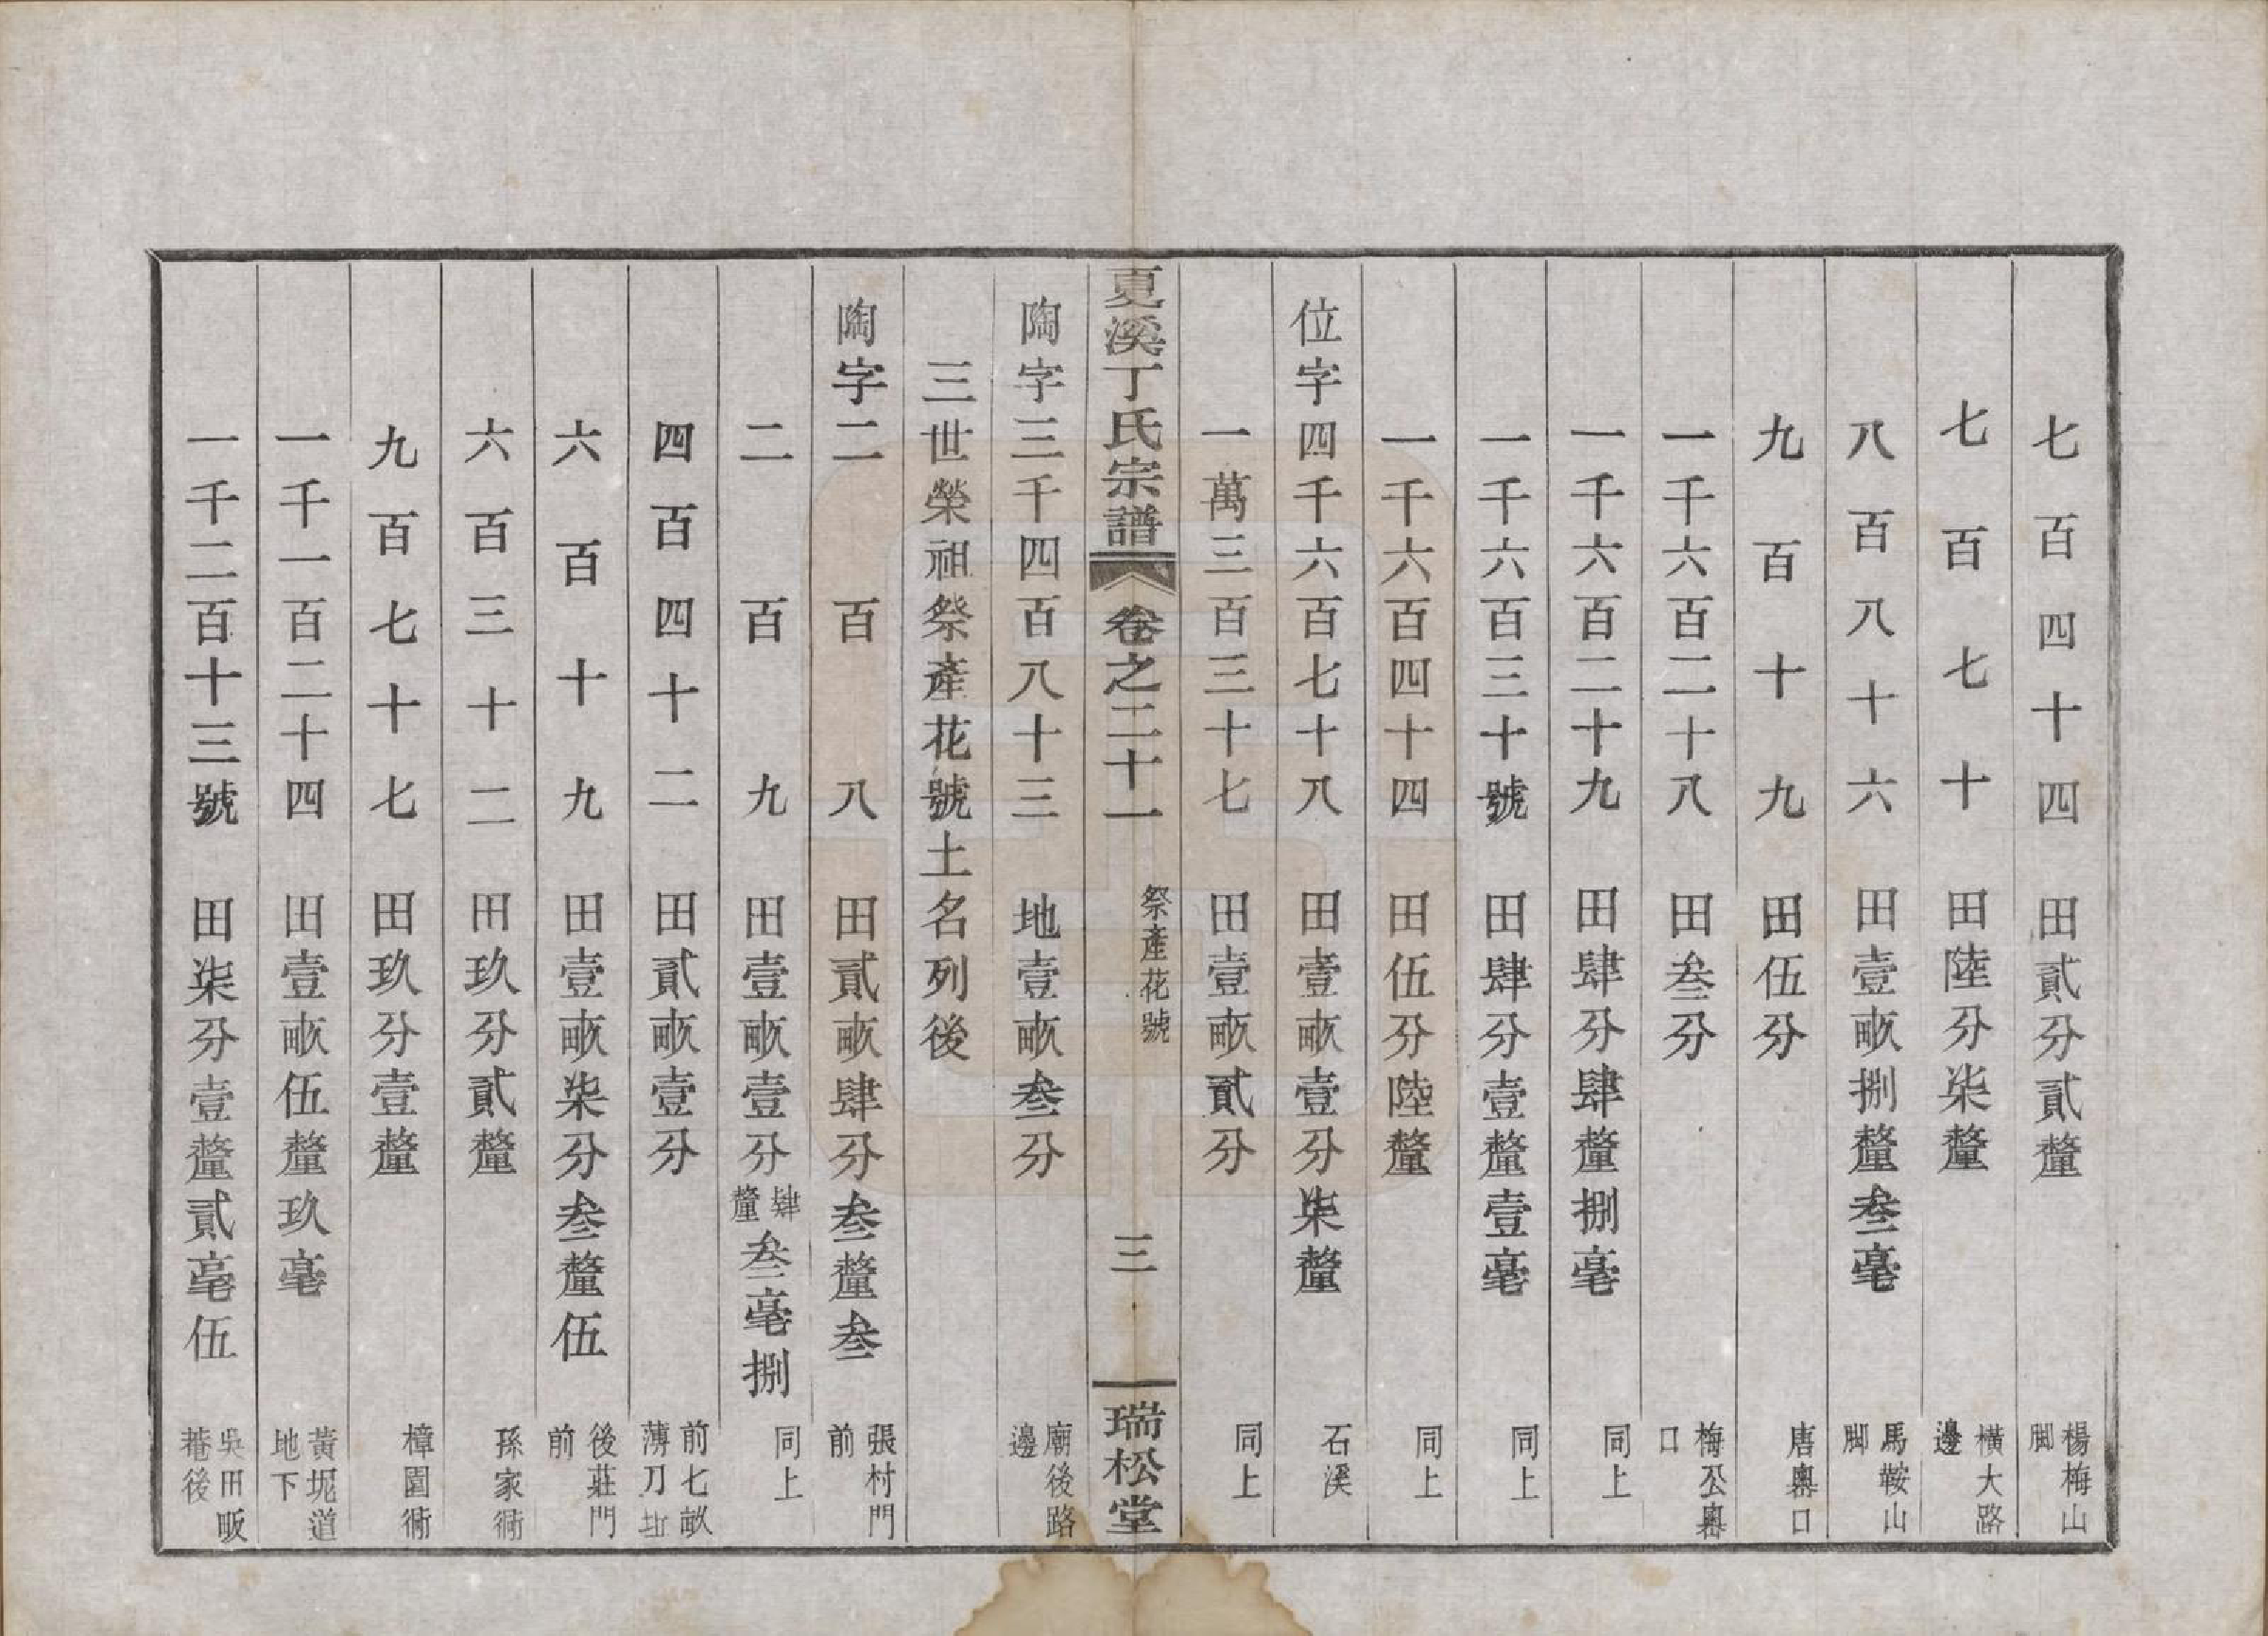 七百四十四　田貳分貳釐　楊梅山脚
七百七十　田陸分柒釐　橫大路邊
八百八十六　田壹畝捌釐叁毫　馬鞍山脚
九百十九　田伍分　唐嶴口
一千六百二十八　田叁分　梅公嶴口
一千六百二十九　田肆分肆釐捌毫　同上
一千六百三十號　田肆分壹釐壹毫　同上
一千六百四十四　田伍分陸釐　同上
位字四千六百七十八　田壹畝壹分柒釐　石溪
一萬三百三十七　田壹畝貳分　同上
夏溪丁氏宗譜　卷之二十一　祭產花號　三　瑞松堂
陶字三千四百八十三　地壹畝叁分　廟後路邊
三世榮祖祭產花號土名列後
陶字二百八　田貳畝肆分叁釐叁　張村門前
二百九　田壹畝壹分肆釐叁毫捌　同上
四百四十二　田貳畝壹分　前七畝薄刀坵
六百十九　田壹畝柒分叁釐伍　後莊門前
六百三十二　田玖分貳釐　孫家衕
九百七十七　田玖分壹釐　樟園衕
一千一百二十四　田壹畝伍釐玖毫　黃坭道地下
一千二百十三號　田柒分壹釐貳毫伍　吳田畈菴後